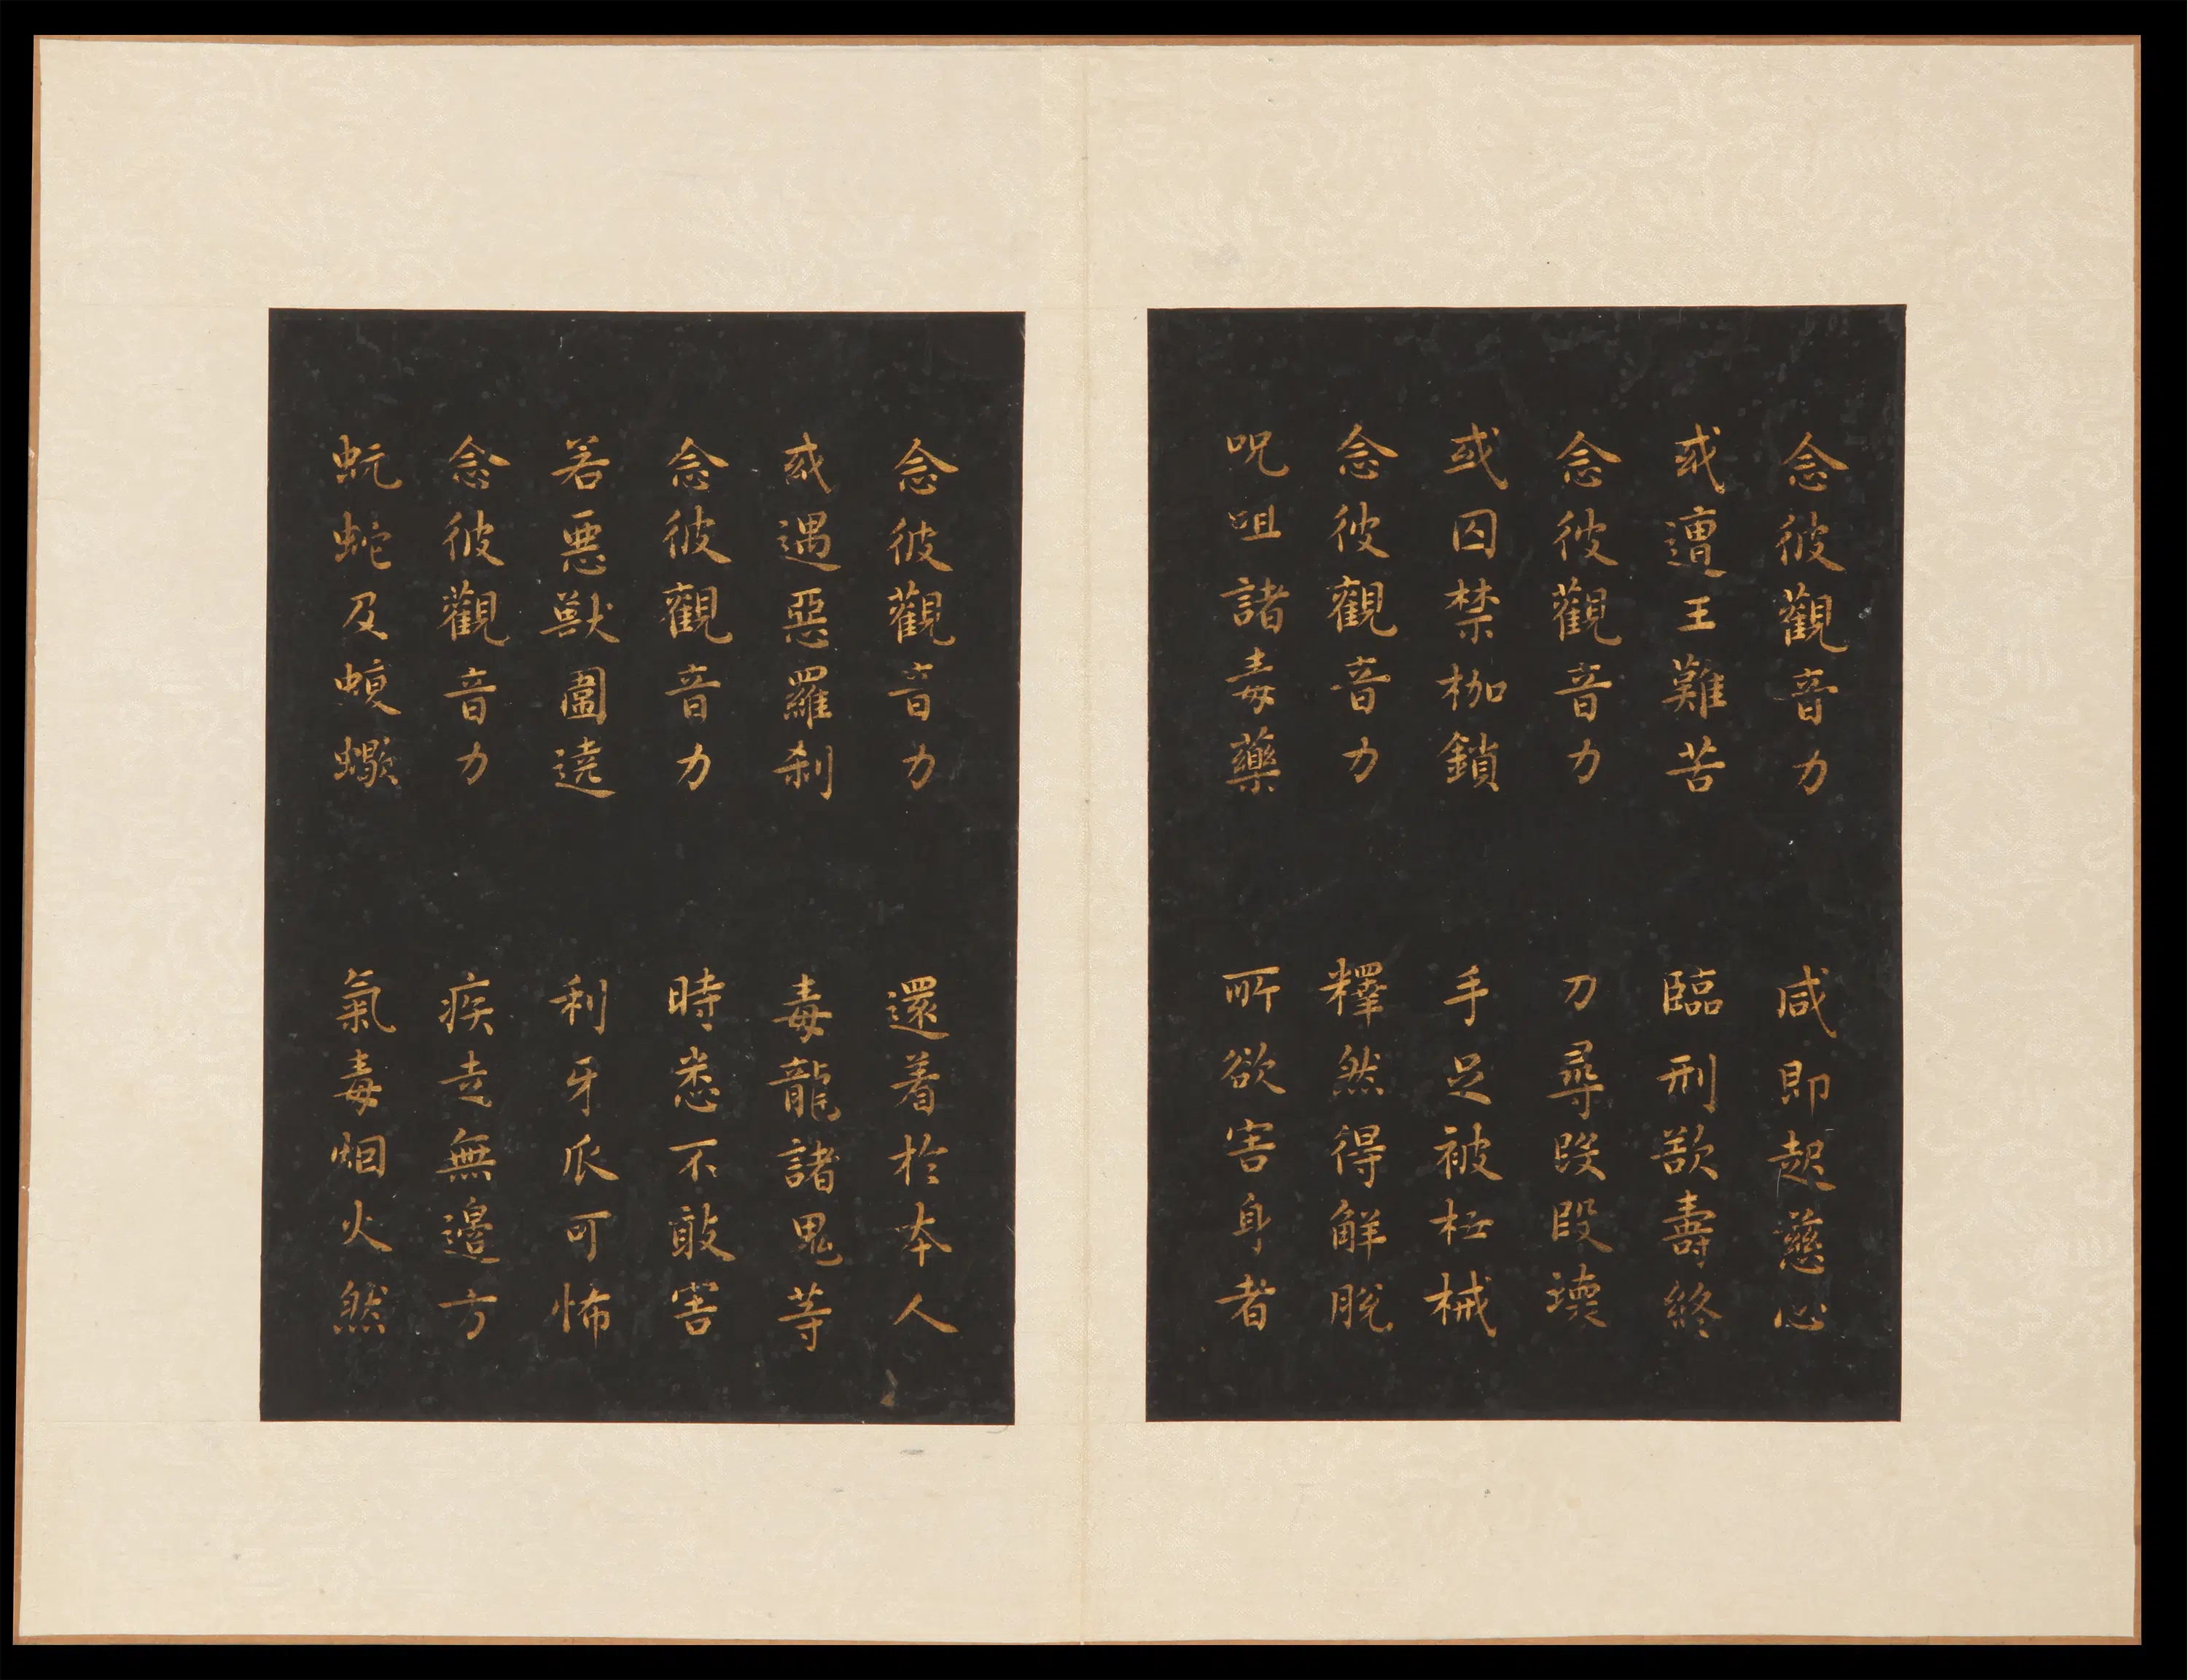 念彼觀音力 咸即起慈心
或遭王難苦 臨刑欲壽終
念彼觀音力 刀尋段段壞
或囚禁枷鎖 手足被杻械
念彼觀音力 釋然得解脫
呪咀諸毒藥 所欲害身者
念彼觀音力 還着於本人
或遇惡羅刹 毒龍諸鬼等
念彼觀音力 時悉不敢害
若惡獸圍遶 利牙爪可怖
念彼觀音力 疾走無邊方
蚖蛇及蝮蠍 氣毒烟火然